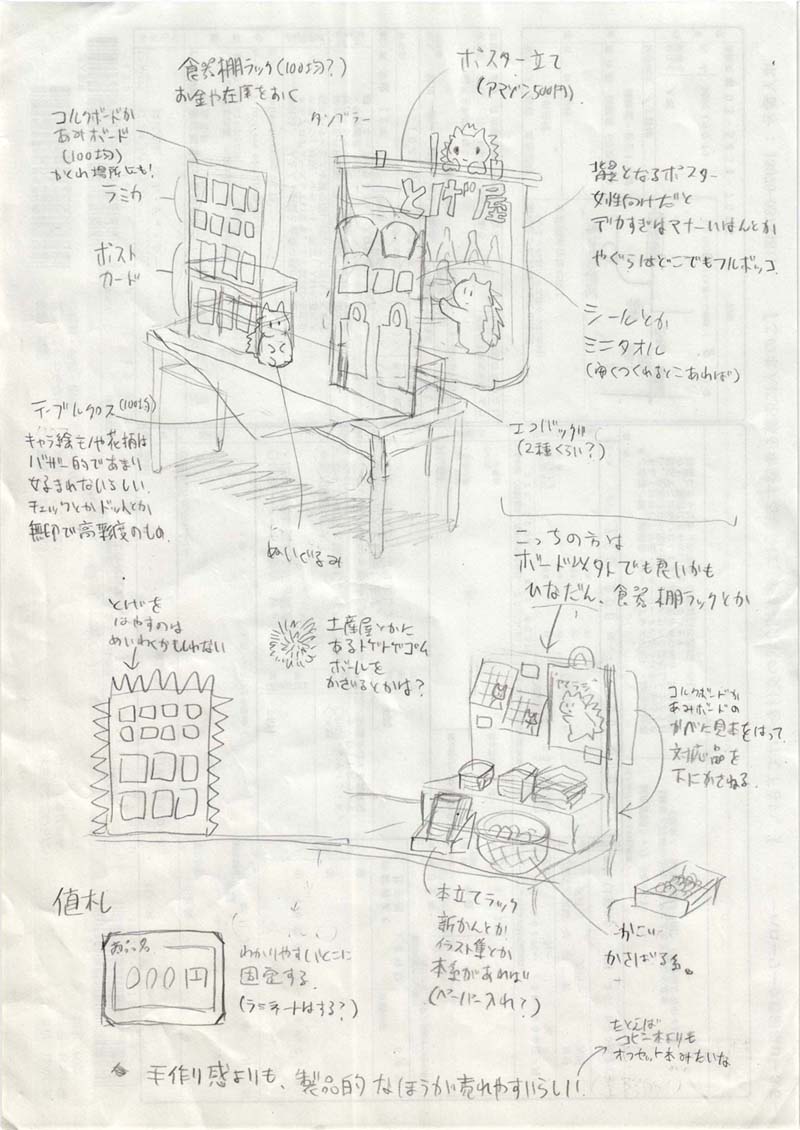 食器棚ラック(100均?)
お金や在庫をおく
ポスター立て
(アマゾン500円)
コルクボードか
あみボード
(100均)
かくれ場所にも!
ラミカ
ポスト
カード
タンブラー
とげ屋
背景となるポスター
女性向けだと
デカすぎはマナーいはんとか
やぐらはどこでもフルボッコ
シールとか
ミニタオル
(安くつくれるとこあれば)
エコバッグ
(2種くらい?)
テーブルクロス(100均)
キャラ絵モノや花柄は
バザー的であまり
好まれないらしい
チェックとかドットとか
無印で高彩度のもの
ぬいぐるみ
こっちの方は
ボード以外でも良いかも
ひなだん、食器棚ラックとか
とげを
はやすのは
めいわくかもしれない
土産屋とかに
あるトゲトゲゴム
ボールを
かざるとかは?
コルクボードか
あみボードの
かべに見本をはって
対応品を
下にかさねる
値札
000円
わかりやすいとこに
固定する
(ラミネートはする?)
本立てラック
新かんとか
イラスト集とか
本系があれば
(ペーパー入れ?)
かさばる系。
たとえば
コピー本よりも
オフセット本みたいな
手作り感よりも、製品的なほうが売れやすいらしい